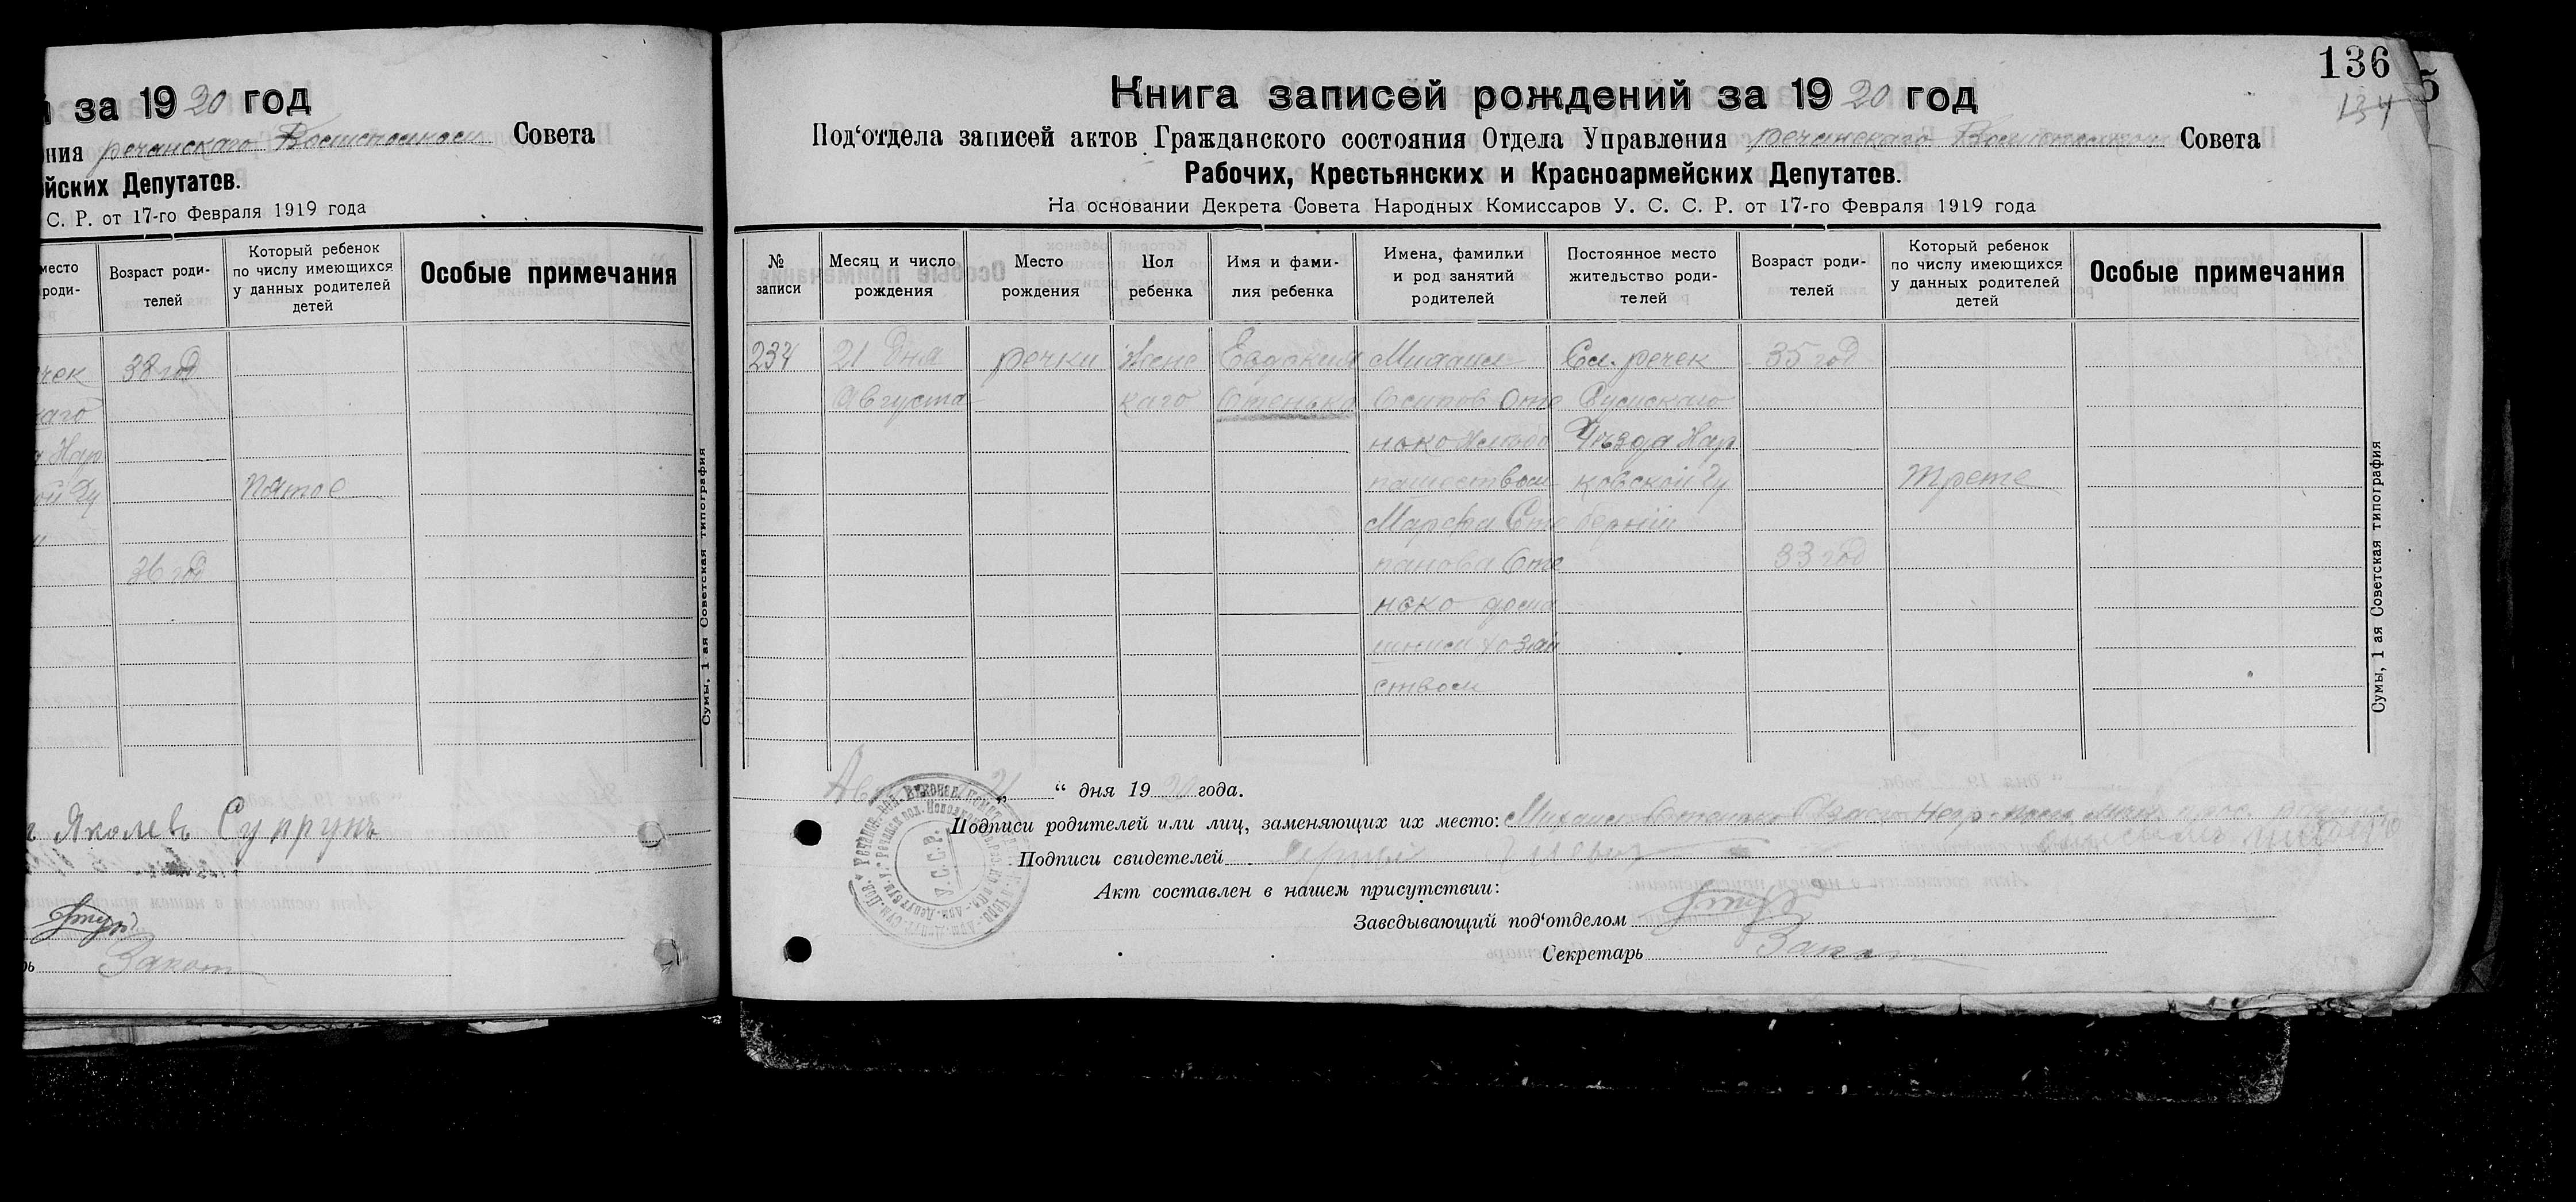 й за 1920 год
ния речанскаго Волисполком Совета
йских Депутатов.
С. Р. от 17-го Февраля 1919 года
место
роди-
Возраст роди-
телей
Который ребенок
по числу имеющихся
у данных родителей
детей
Особые примечания
чек 38 год
каго
Хар
ой Гу Пятое
36 год
Яколевъ Супрунъ
Сумы, 1 ая Советская типография
136
134
5
Книга записей рождений за 1920 год
Под'отдела записей актов Гражданского состояния Отдела Управления речанскаго Волисполком Совета
Рабочих, Крестьянских и Красноармейских Депутатов.
На основании Декрета Совета Народных Комиссаров У. С. С. Р. от 17-го Февраля 1919 года
№
записи
Месяц и число
рождения
Место
рождения
Пол
ребенка
Имя и фами-
лия ребенка
Имена, фамилии
и род занятий
родителей
Постоянное место
жительство роди-
телей
Возраст роди-
телей
Который ребенок
по числу имеющихся
у данных родителей
детей
Особые примечания
234 21 дня речки Женс Евдокия Михаил Сл. речек 35 год
Августа каго Осипов Сумскаго
Уезда Хар
ковской Гу Трете
Марфа Сте бернии
панова 33 год
нько дома
шним хозяй
ством
21 “ дня 1920 года.
Подписи родителей или лиц, заменяющих их место: Михаил
Подписи свидетелей
Акт составлен в нашем присутствии:
Заведывающий под'отделом
Секретарь
У.С.С.Р.
Сумы, 1 ая Советская типография